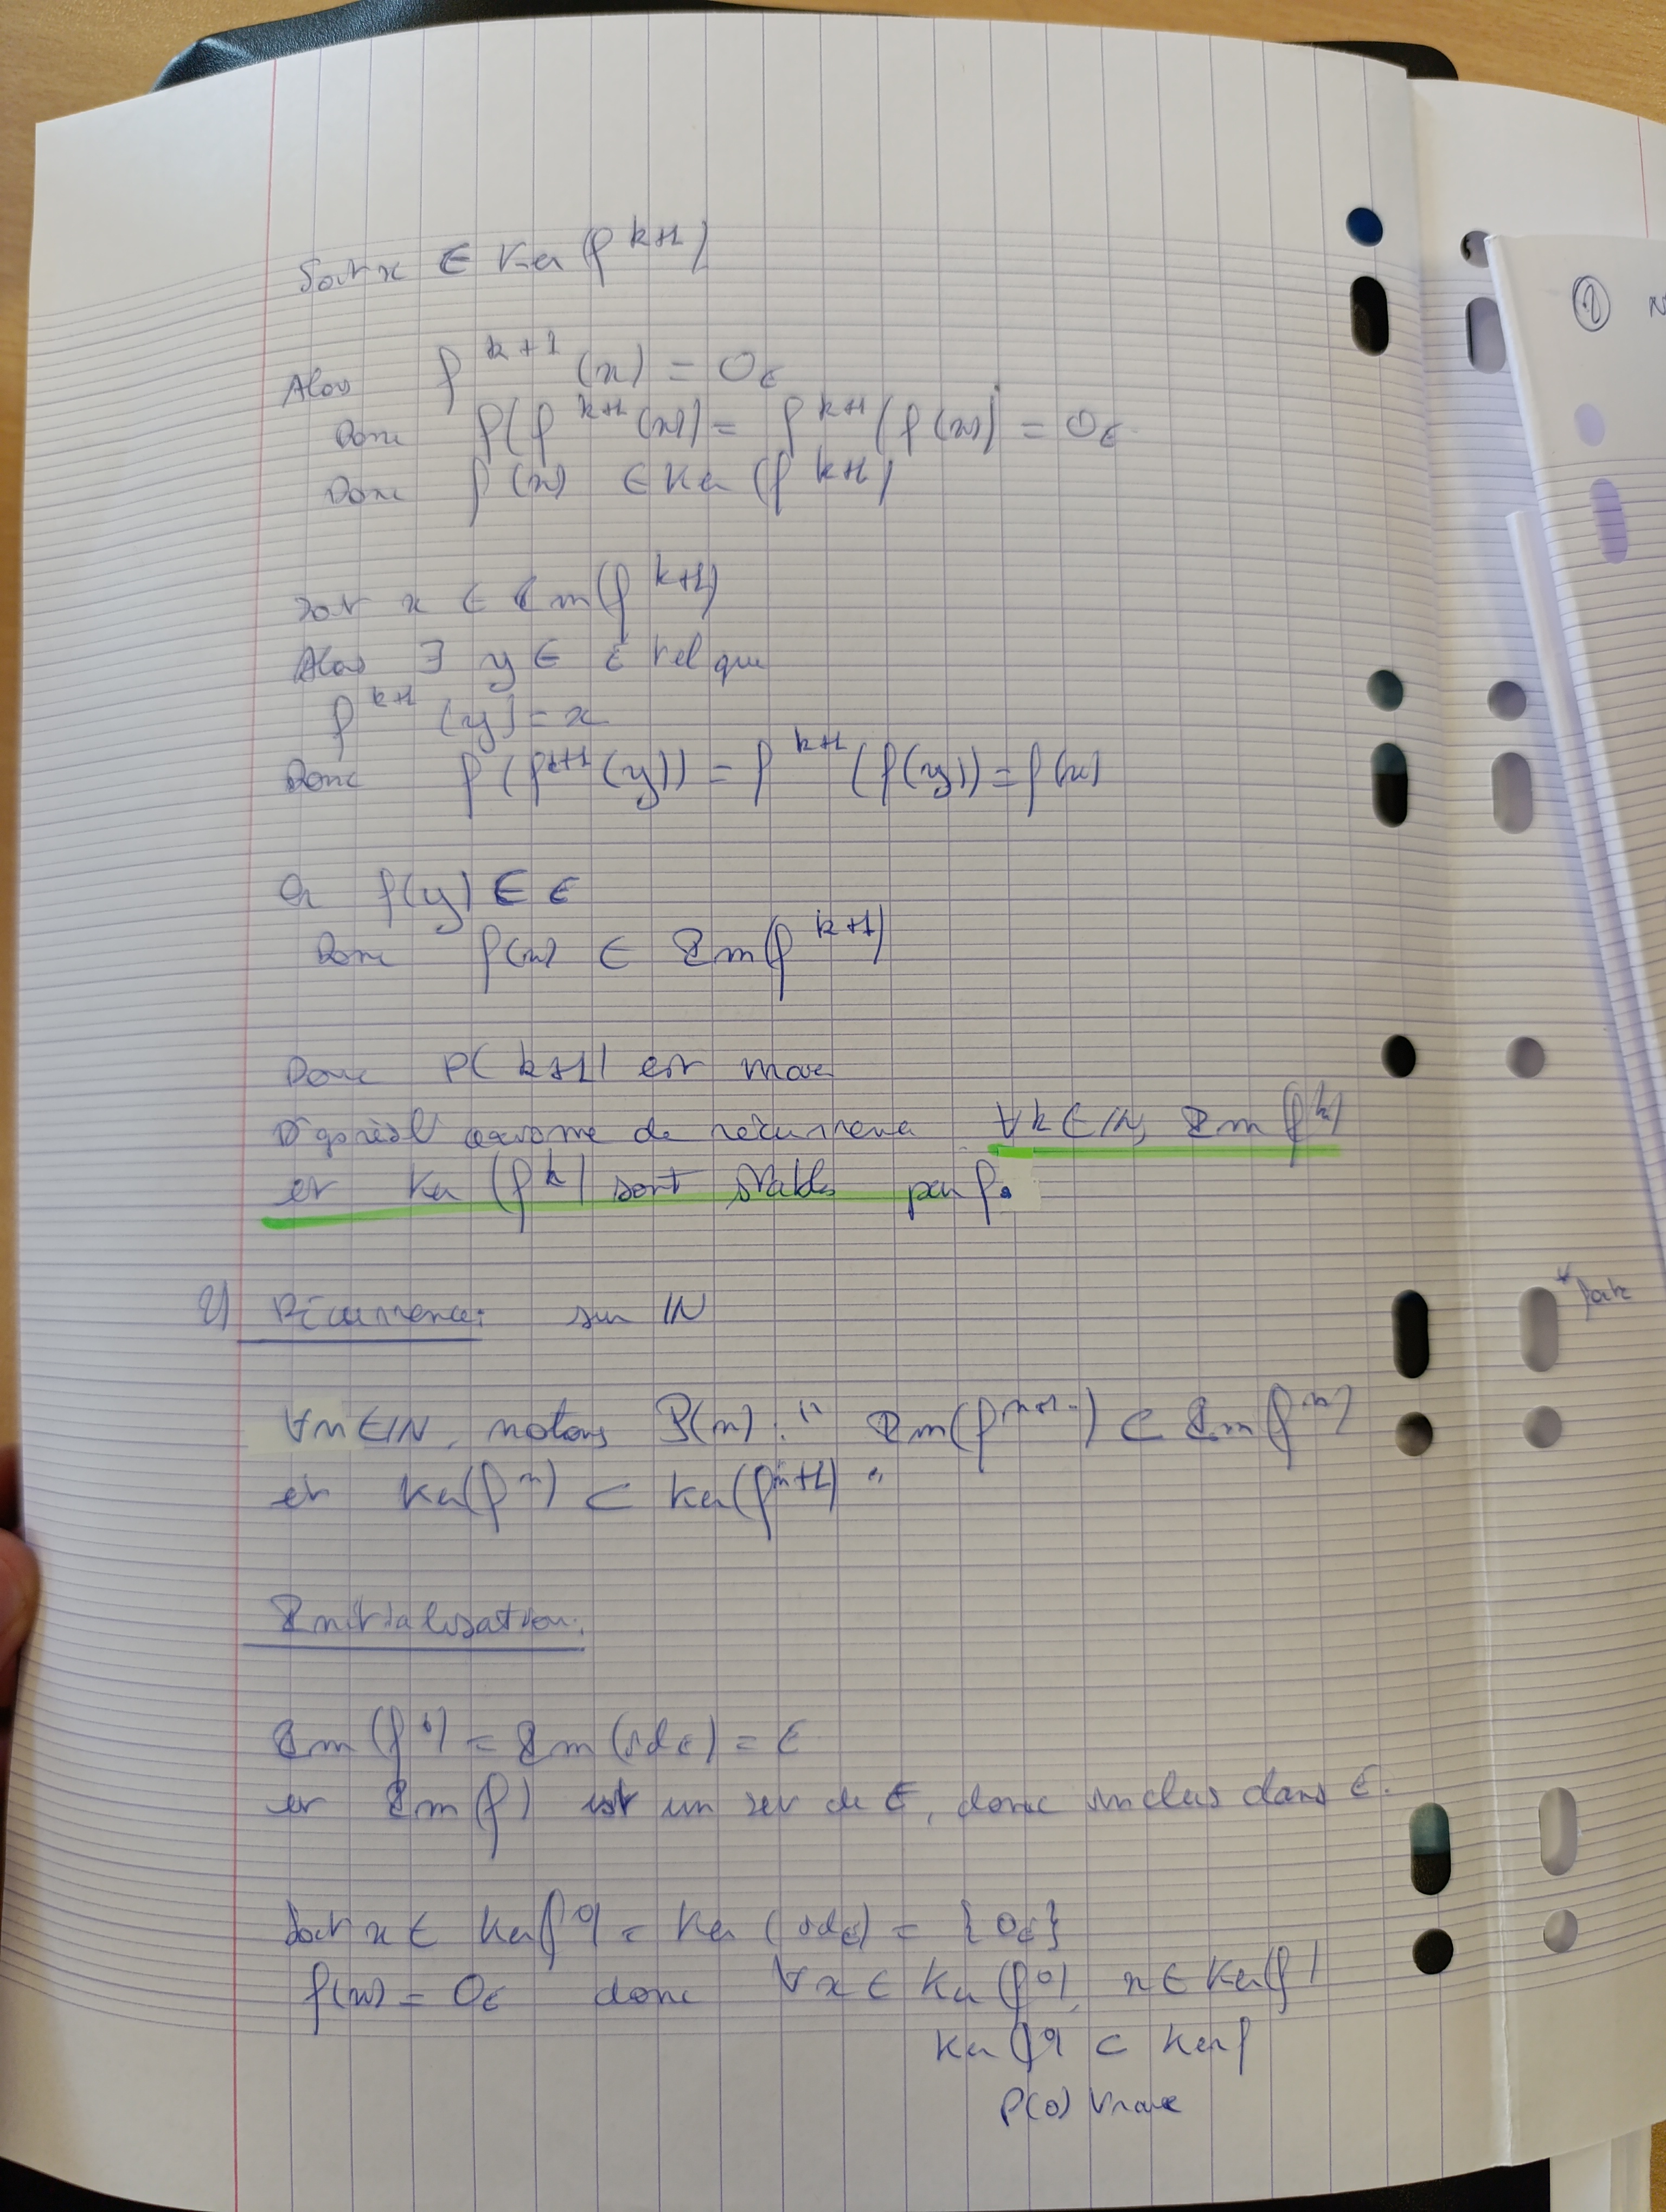 Soit x ∈ Ker(f^{k+1})
Alors f^{k+1}(x) = 0_E
Donc f(f^{k+1}(x)) = f^{k+1}(f(x)) = 0_E
Donc f(x) ∈ Ker(f^{k+1})
Soit x ∈ Im(f^{k+1})
Alors ∃ y ∈ E tel que
f^{k+1}(y) = x
Donc f(f^{k+1}(y)) = f^{k+1}(f(y)) = f(x)
Or f(y) ∈ E
Donc f(x) ∈ Im(f^{k+1})
Donc P(k+1) est vraie
D'après l'axiome de récurrence ∀k ∈ IN, Im(f^k)
et Ker(f^k) sont stables par f.
2) Récurrence: sur IN
∀n ∈ IN, notons P(n): " Im(f^{n+1}) ⊂ Im(f^n)
et Ker(f^n) ⊂ Ker(f^{n+1}) "
Initialisation:
Im(f^0) = Im(id_E) = E
et Im(f) est un sev de E, donc inclus dans E.
Soit x ∈ Ker(f^0) = Ker(id_E) = {0_E}
f(x) = 0_E donc ∀x ∈ Ker(f^0), x ∈ Ker(f)
Ker(f^0) ⊂ Ker f
P(0) vraie
②